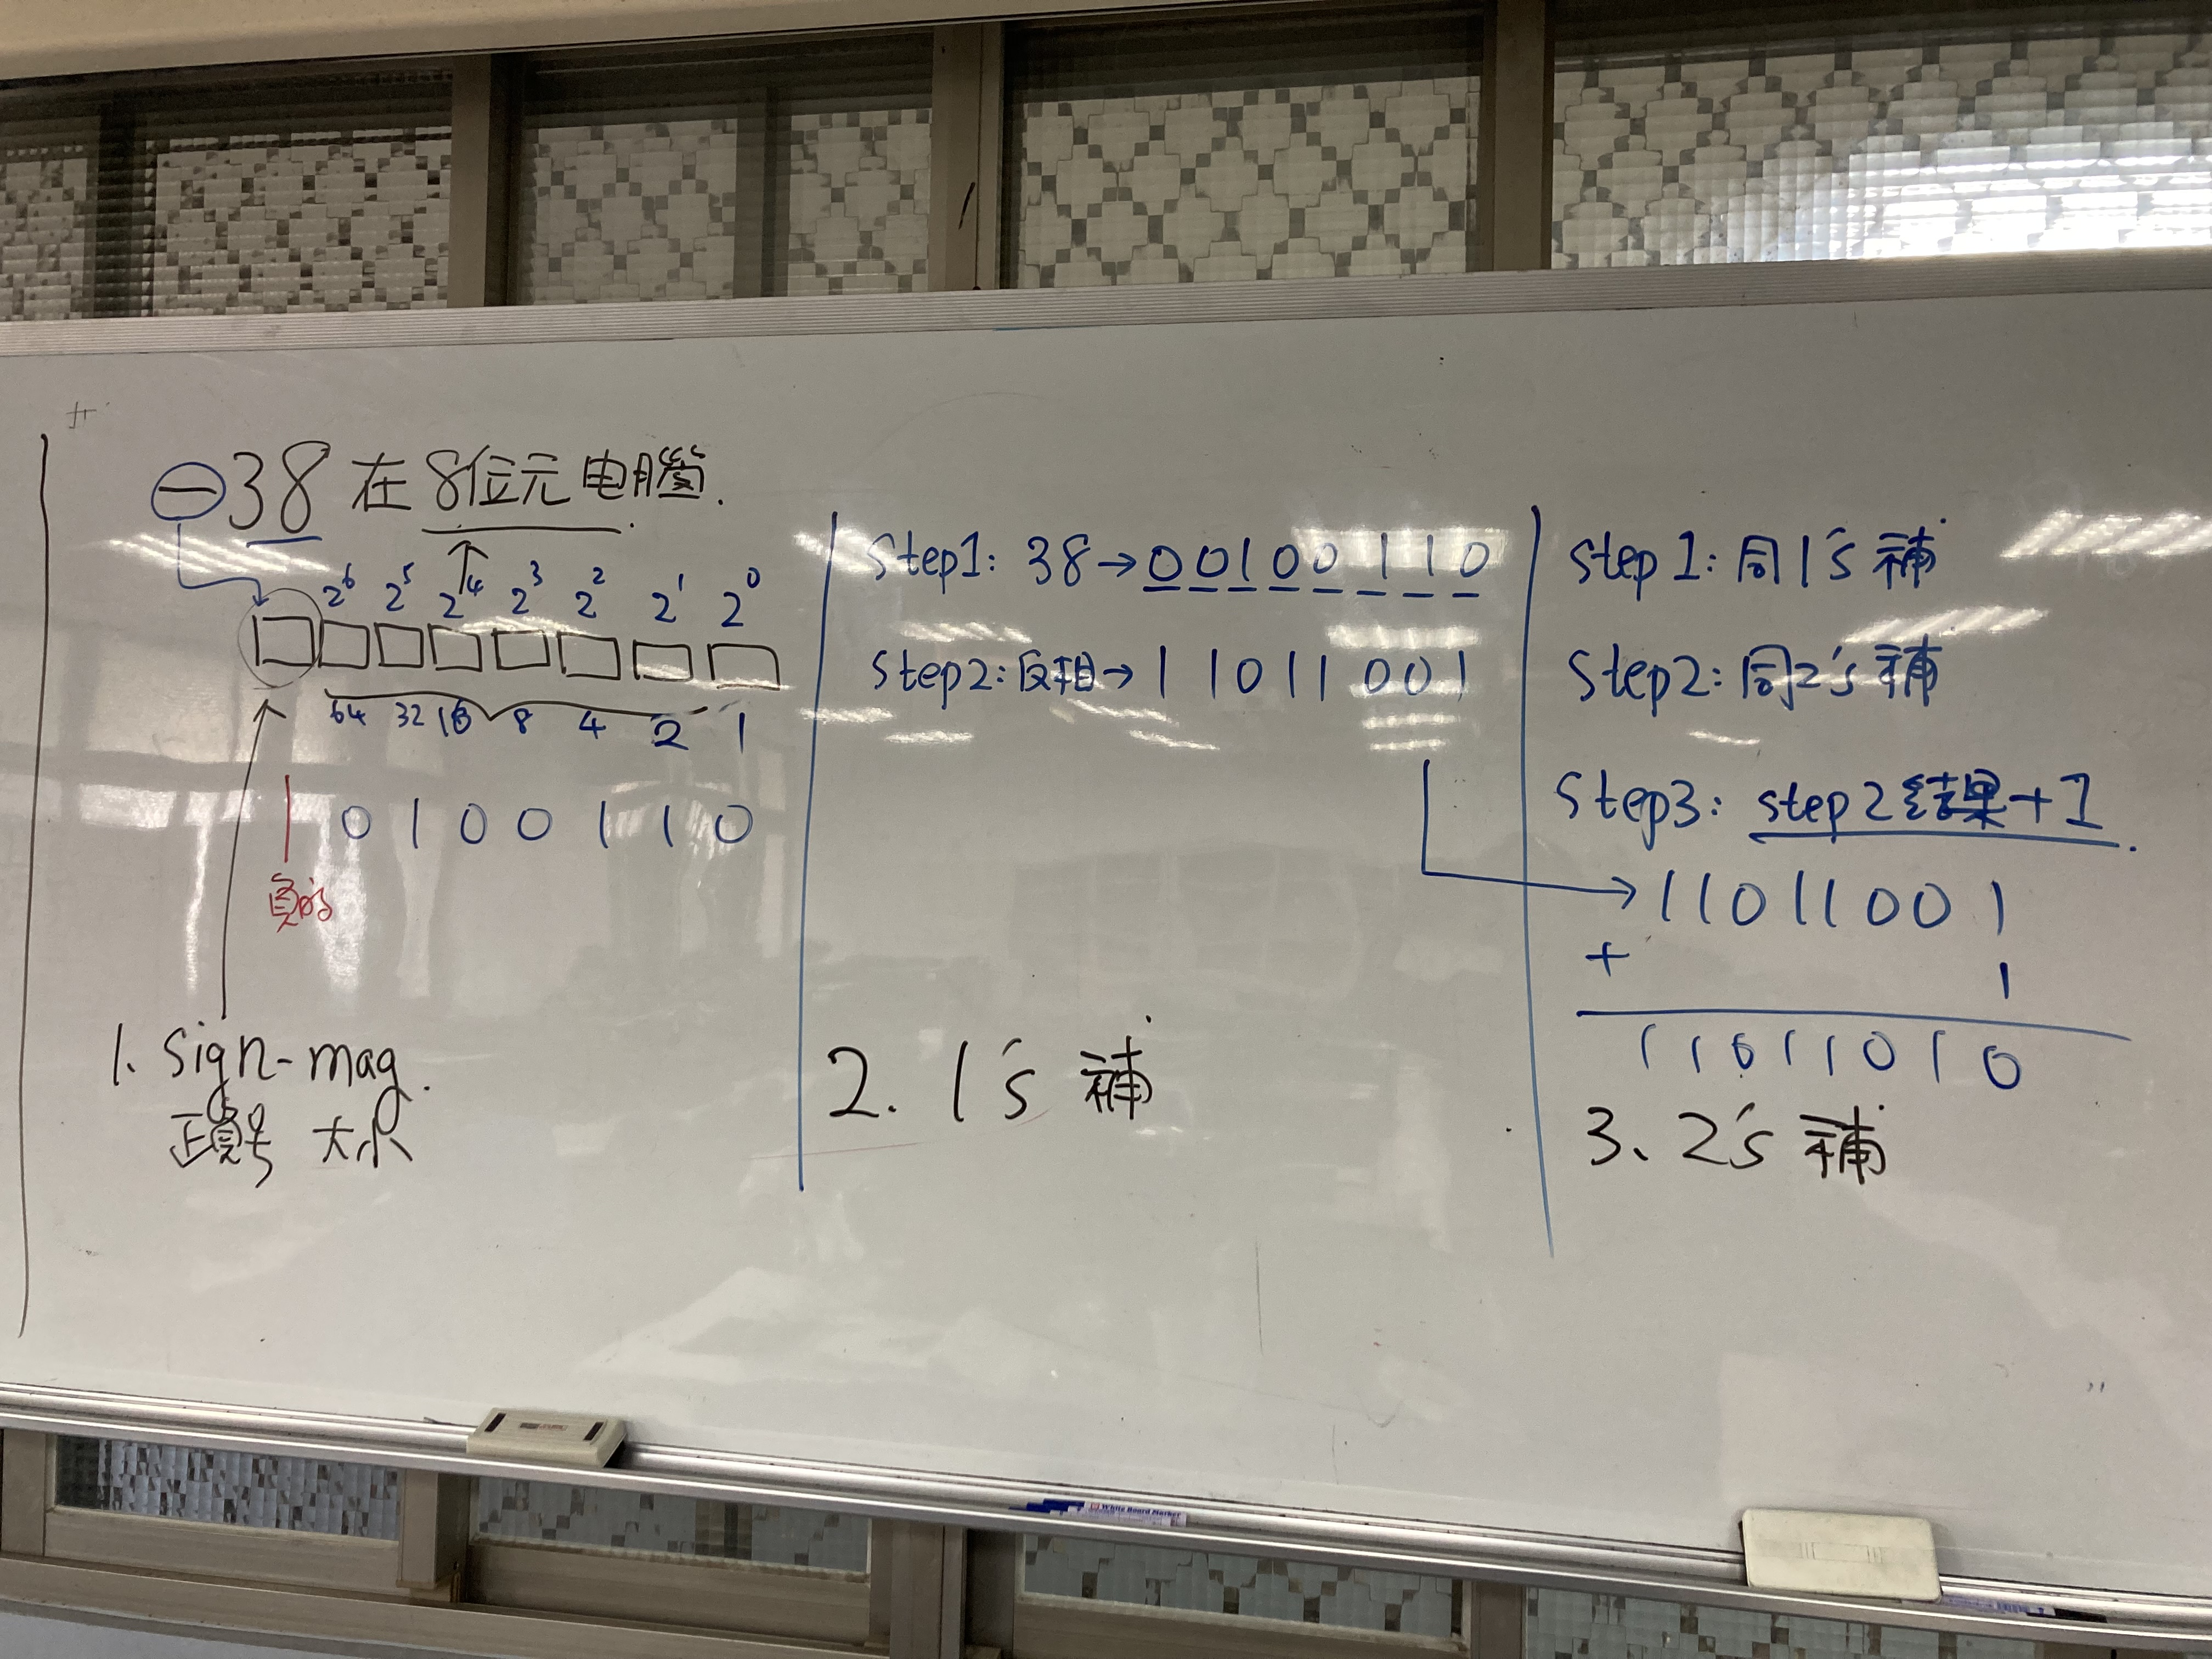 -38 在 8位元 电腦.
2⁶ 2⁵ 2⁴ 2³ 2² 2¹ 2⁰
64 32 16 8 4 2 1
1 0 1 0 0 1 1 0
負的
1. sign-mag.
正負號 大小
step1: 38→00100110
step2: 反相→11011001
2. 1's 補
step 1: 同1's 補
step2: 同2's 補
step3: step 2 結果+1
→11011001
+ 1
11011010
3、2's 補
White Board Marker